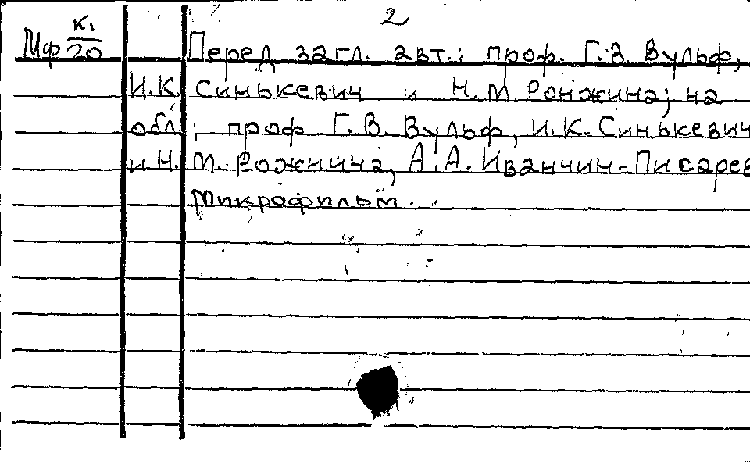 2
Мф К1/20
Перед загл. авт.: проф. Г.В. Вульф,
И.К. Синькевич и Н.М. Ронжина; на
обл.: проф. Г.В. Вульф, И.К. Синькевич
и Н.М. Рожнина, А.А. Иванчин-Писарев
Микрофильм.